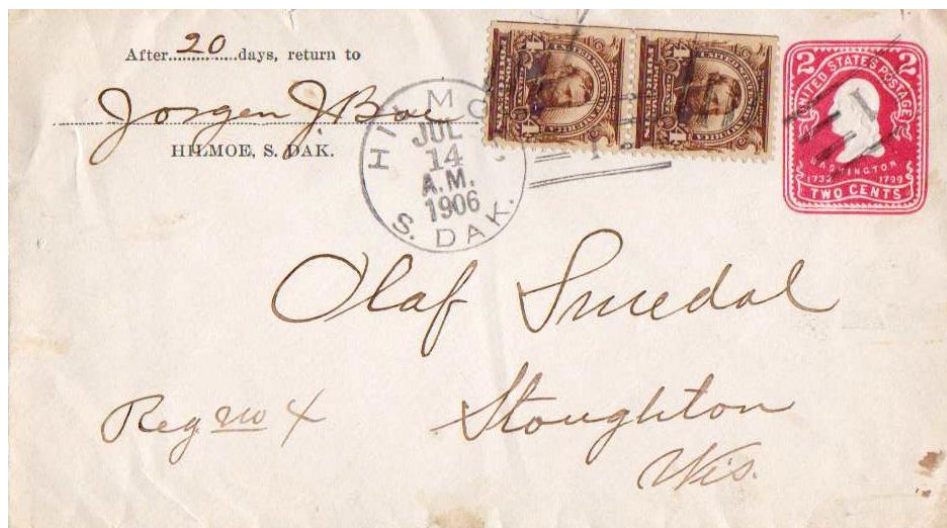 After 20 days, return to
Jorgen J.
HILMOE, S. DAK.
HILMO
JUL
14
A.M.
1906
S. DAK.
2 2
UNITED STATES POSTAGE
WASHINGTON
1732 1799
TWO CENTS
Olaf Smedal
Reg no 4
Stoughton
Wis.